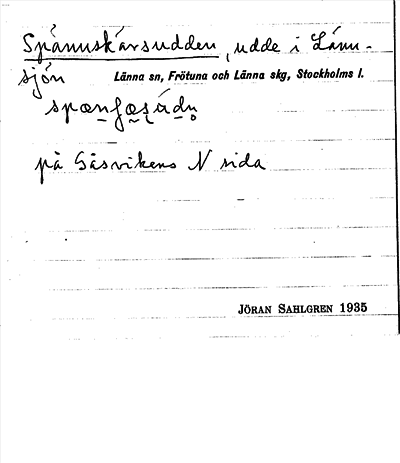 Spånnskärsudden, udde i Länn-
sjön Länna sn, Frötuna och Länna skg, Stockholms l.
på Gåsvikens N sida
JÖRAN SAHLGREN 1935